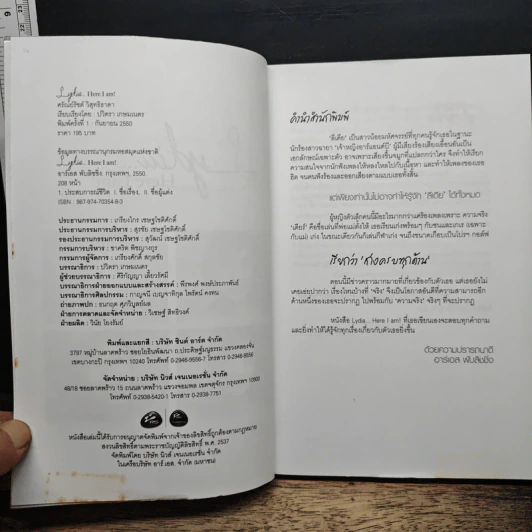 Lydia.. Here I am!
ศรัณย์รัชต์ วิสุทธิธาดา
เรียบเรียงโดย : ปวิตรา เกษมเนตร
พิมพ์ครั้งที่ 1 : กันยายน 2550
ราคา 195 บาท
ข้อมูลทางบรรณานุกรมหอสมุดแห่งชาติ
Lydia.. Here I am!
อาร์เอส พับลิชชิ่ง กรุงเทพฯ, 2550.
208 หน้า
1. ประสบการณ์ชีวิต I. ชื่อเรื่อง. II ชื่อผู้แต่ง
ISBN 987-974-70354-8-3
ประธานกรรมการ : เกรียงไกร เชษฐโชติศักดิ์
ประธานกรรมการบริหาร : สุรชัย เชษฐโชติศักดิ์
รองประธานกรรมการบริหาร : สุวัฒน์ เชษฐโชติศักดิ์
กรรมการบริหาร : ชาคริต พิชญางกูร
กรรมการผู้จัดการ : เกรียงศักดิ์ สกุลชัย
บรรณาธิการ : ปวิตรา เกษมเนตร
ผู้ช่วยบรรณาธิการ : ศิริกัญญา เลี้ยวรัศมี
บรรณาธิการฝ่ายออกแบบและสร้างสรรค์ : พีรพงศ์ พงษ์ประภาพันธ์
บรรณาธิการศิลปกรรม : กาญจนี เบญจาทิกุล ไพรัตน์ คงทน
ถ่ายภาพปก : ธนกฤต ศุภกิจบูลย์ผล
ฝ่ายการตลาดและจัดจำหน่าย : วิเชษฐ์ สิทธิวงศ์
ฝ่ายผลิต : วินัย โยธรัมย์
พิมพ์และแยกสี : บริษัท ซินต์ อาร์ต จำกัด
3797 หมู่บ้านลาดพร้าว ซอยโยธินพัฒนา ถ.ประดิษฐ์มนูธรรม แขวงคลองจั่น
เขตบางกะปิ กรุงเทพฯ 10240 โทรศัพท์ 0-2946-9556-7 โทรสาร 0-2946-9556
จัดจำหน่าย : บริษัท นิวส์ เจนเนอเรชั่น จำกัด
48/18 ซอยลาดพร้าว 15 ถนนลาดพร้าว แขวงจอมพล เขตจตุจักร กรุงเทพฯ 10900
โทรศัพท์ 0-2938-5420-1 โทรสาร 0-2938-7751
หนังสือเล่มนี้ได้รับการอนุญาตจัดพิมพ์จากเจ้าของลิขสิทธิ์ถูกต้องตามกฎหมาย
สงวนลิขสิทธิ์ตามพระราชบัญญัติลิขสิทธิ์ พ.ศ. 2537
จัดพิมพ์โดย บริษัท นิวส์ เจนเนอเรชั่น จำกัด
ในเครือบริษัท อาร์.เอส. จำกัด (มหาชน)
คำนำสำนักพิมพ์
'ลีเดีย' เป็นสาวน้อยมหัศจรรย์ที่ทุกคนรู้จักเธอในฐานะ
นักร้องสาวฉายา "เจ้าหญิงอาร์แอนด์บี" ผู้มีเสียงร้องเสียงเอื้อนอันเป็น
เอกลักษณ์เฉพาะตัว อาจเพราะเสียงขึ้นจมูกที่แปลกกว่าใคร จึงทำให้เรียก
ความสนใจจากนักฟังเพลงให้หลงใหลไปกับเนื้อหา และทำให้เพลงของเธอ
ฮิต จนคนฟังร้องและออกเสียงตามแบบเธอทั้งสิ้น
แต่เพียงเท่านั้นไม่อาจทำให้รู้จัก "ลีเดีย" ได้ทั้งหมด
ผู้หญิงตัวเล็กคนนี้มีอะไรมากกว่าแค่ร้องเพลงเพราะ ความจริง
"เดียร์" คือชื่อเล่นที่พ่อแม่ตั้งให้ เธอเรียนเก่งพร้อมๆ กับซนและเกเร (เฉพาะ
กับแม่) เก่ง ในขณะเดียวกันก็เล่นกีฬาเก่ง จนถึงขนาดเกือบเป็นโปรฯ กอล์ฟ
เรียกว่า 'เก่งครบทุกด้าน'
ตอนนี้มีข่าวคราวมากมายที่เกี่ยวข้องกับตัวเธอ แต่เธอยังไม่
เคยเอ่ยปากว่า เรื่องไหนบ้างที่ 'จริง' จึงเป็นโอกาสอันดีที่ความสามารถอีก
ด้านหนึ่งของเธอจะปรากฎ ไปพร้อมกับ "ความจริง" จริงๆ ที่จะปรากฎ
หนังสือ Lydia... Here I am! ที่เธอเขียนเองจะตอบทุกคำถาม
และยิ่งทำให้ได้รู้จักทุกเรื่องเกี่ยวกับตัวเธอยิ่งขึ้น
ด้วยความปรารถนาดี
อาร์เอส พับลิชชิ่ง